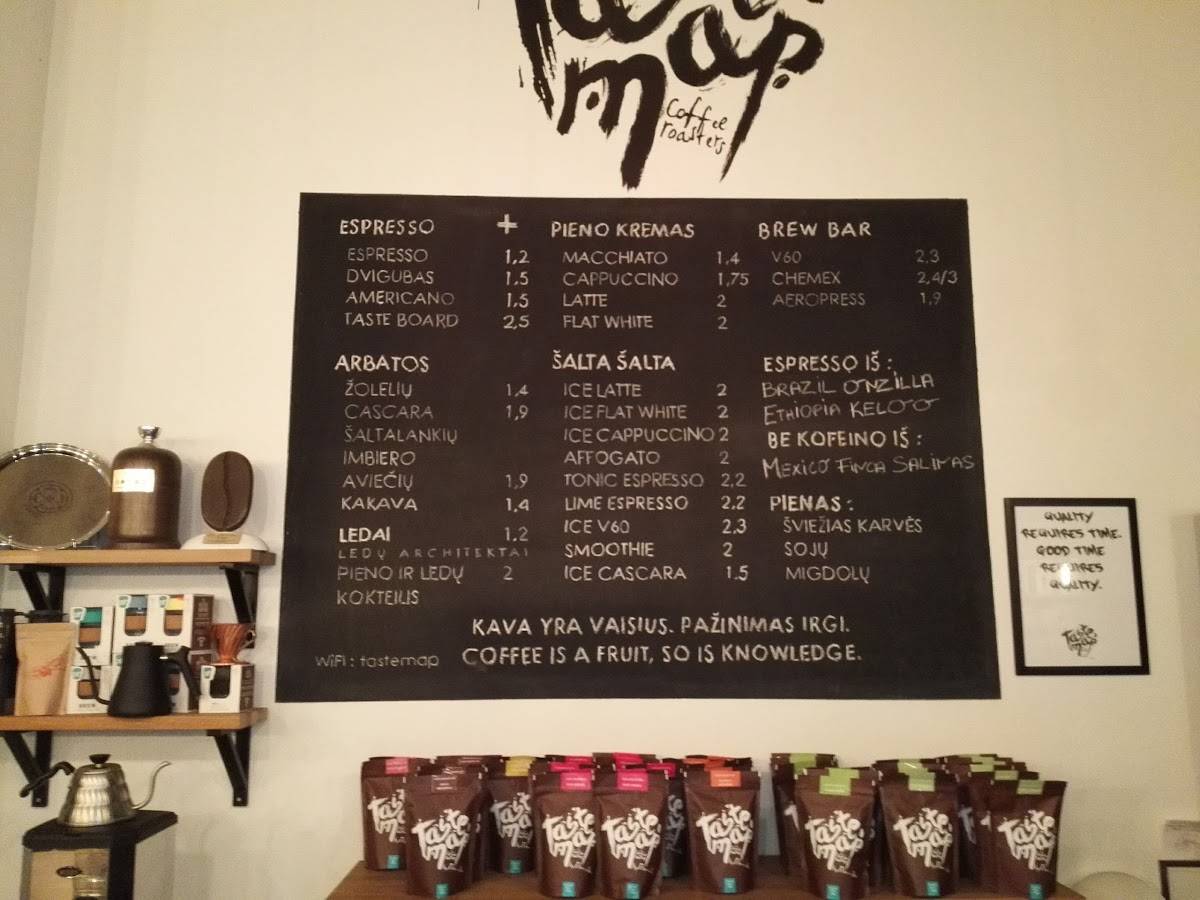 Taste
map
coffee
roasters
ESPRESSO +
ESPRESSO 1,2
DVIGUBAS 1,5
AMERICANO 1,5
TASTE BOARD 2,5
PIENO KREMAS
MACCHIATO 1,4
CAPPUCCINO 1,75
LATTE 2
FLAT WHITE 2
BREW BAR
V60 2,3
CHEMEX 2,4/3
AEROPRESS 1,9
ARBATOS
ŽOLELIŲ 1,4
CASCARA 1,9
ŠALTALANKIŲ
IMBIERO
AVIEČIŲ 1,9
KAKAVA 1,4
LEDAI 1,2
LEDŲ ARCHITEKTAI
PIENO IR LEDŲ 2
KOKTEILIS
ŠALTA ŠALTA
ICE LATTE 2
ICE FLAT WHITE 2
ICE CAPPUCCINO 2
AFFOGATO 2
TONIC ESPRESSO 2,2
LIME ESPRESSO 2,2
ICE V60 2,3
SMOOTHIE 2
ICE CASCARA 1,5
ESPRESSO IŠ :
BRAZIL ONZILLA
ETHIOPIA KELOO
BE KOFEINO IŠ :
MEXICO FINCA SALINAS
PIENAS :
ŠVIEŽIAS KARVĖS
SOJŲ
MIGDOLŲ
KAVA YRA VAISIUS. PAŽINIMAS IRGI.
WiFi : tastemap COFFEE IS A FRUIT, SO IS KNOWLEDGE.
QUALITY
REQUIRES TIME.
GOOD TIME
REQUIRES
QUALITY.
Taste
map
Taste
map
Taste
map
Taste
map
Taste
map
Taste
map
Taste
map
Taste
map
Taste
map
Taste
map